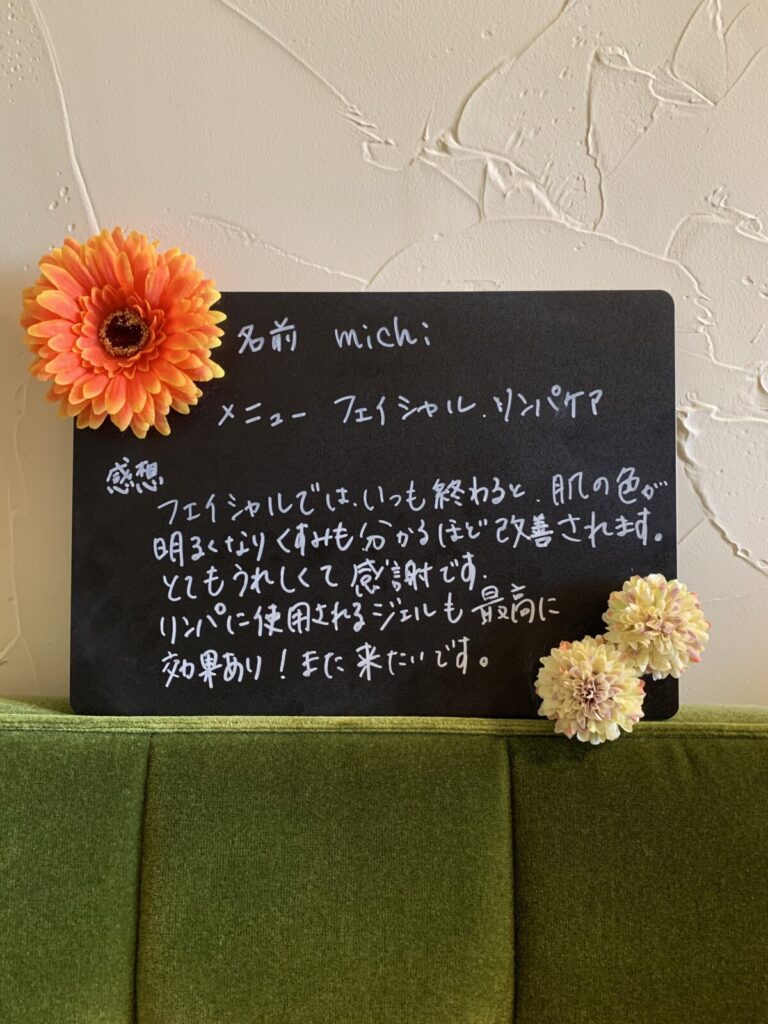 名前 michi
メニュー フェイシャル.リンパケア
感想
フェイシャルでは、いつも終わると、肌の色が
明るくなりくすみも分かるほど改善されます。
とてもうれしくて感謝です.
リンパに使用されるジェルも最高に
効果あり!また来たいです。